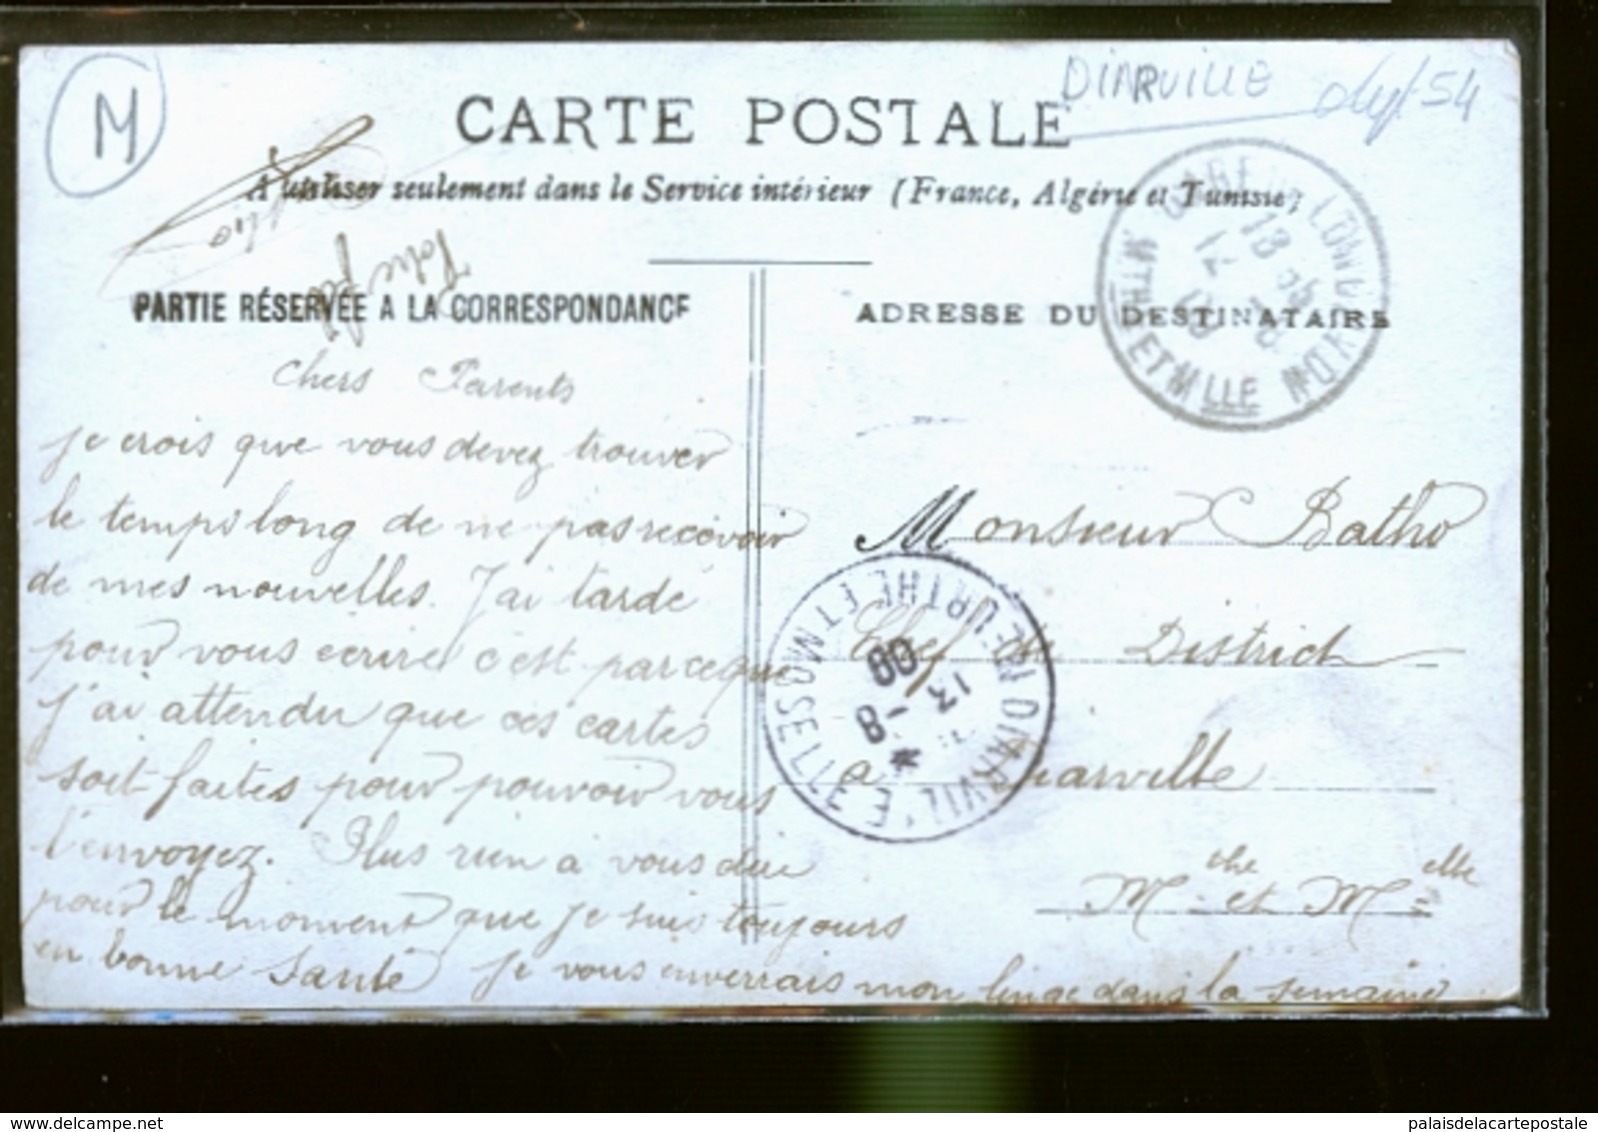 M
DIARVILLE
54
CARTE POSTALE
A utiliser seulement dans le Service intérieur (France, Algérie et Tunisie)
PARTIE RÉSERVÉE A LA CORRESPONDANCE
ADRESSE DU DESTINATAIRE
Votre fils
Chers Parents
je crois que vous devez trouver
le temps long de ne pas recevoir
de mes nouvelles. J'ai tardé
pour vous écrire c'est parce que
j'ai attendu que ces cartes
soit faites pour pouvoir vous
l'envoyez. Plus rien a vous dire
pour le moment que je suis toujours
en bonne Santé je vous enverrais mon linge dans la semaine
Monsieur Batho
Chef de District
a Diarville
Mthe et Melle
GARE LONGWY
Mthe ET MLLE
12
13 55
DIARVILLE
MEURTHE ET MOSELLE
13 - 8
09
palaisdelacartepostale